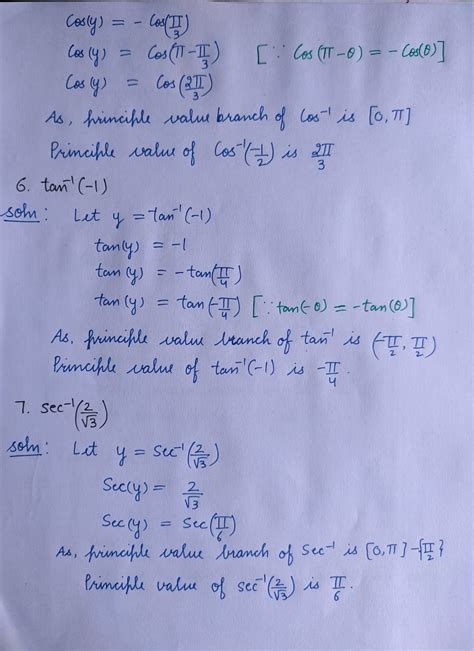 Cos(y) = - Cos(π/3)
Cos(y) = Cos(π - π/3) [∵ Cos(π-θ) = - Cos(θ)]
Cos(y) = Cos(2π/3)
As, principle value branch of Cos⁻¹ is [0, π]
Principle value of Cos⁻¹(-1/2) is 2π/3
6. tan⁻¹(-1)
soln: Let y = tan⁻¹(-1)
tan(y) = -1
tan(y) = -tan(π/4)
tan(y) = tan(-π/4) [∵ tan(-θ) = -tan(θ)]
As, principle value branch of tan⁻¹ is (-π/2, π/2)
Principle value of tan⁻¹(-1) is -π/4.
7. sec⁻¹(2/√3)
soln: Let y = Sec⁻¹(2/√3)
Sec(y) = 2/√3
Sec(y) = Sec(π/6)
As, principle value branch of Sec⁻¹ is [0, π] - {π/2}
Principle value of sec⁻¹(2/√3) is π/6.